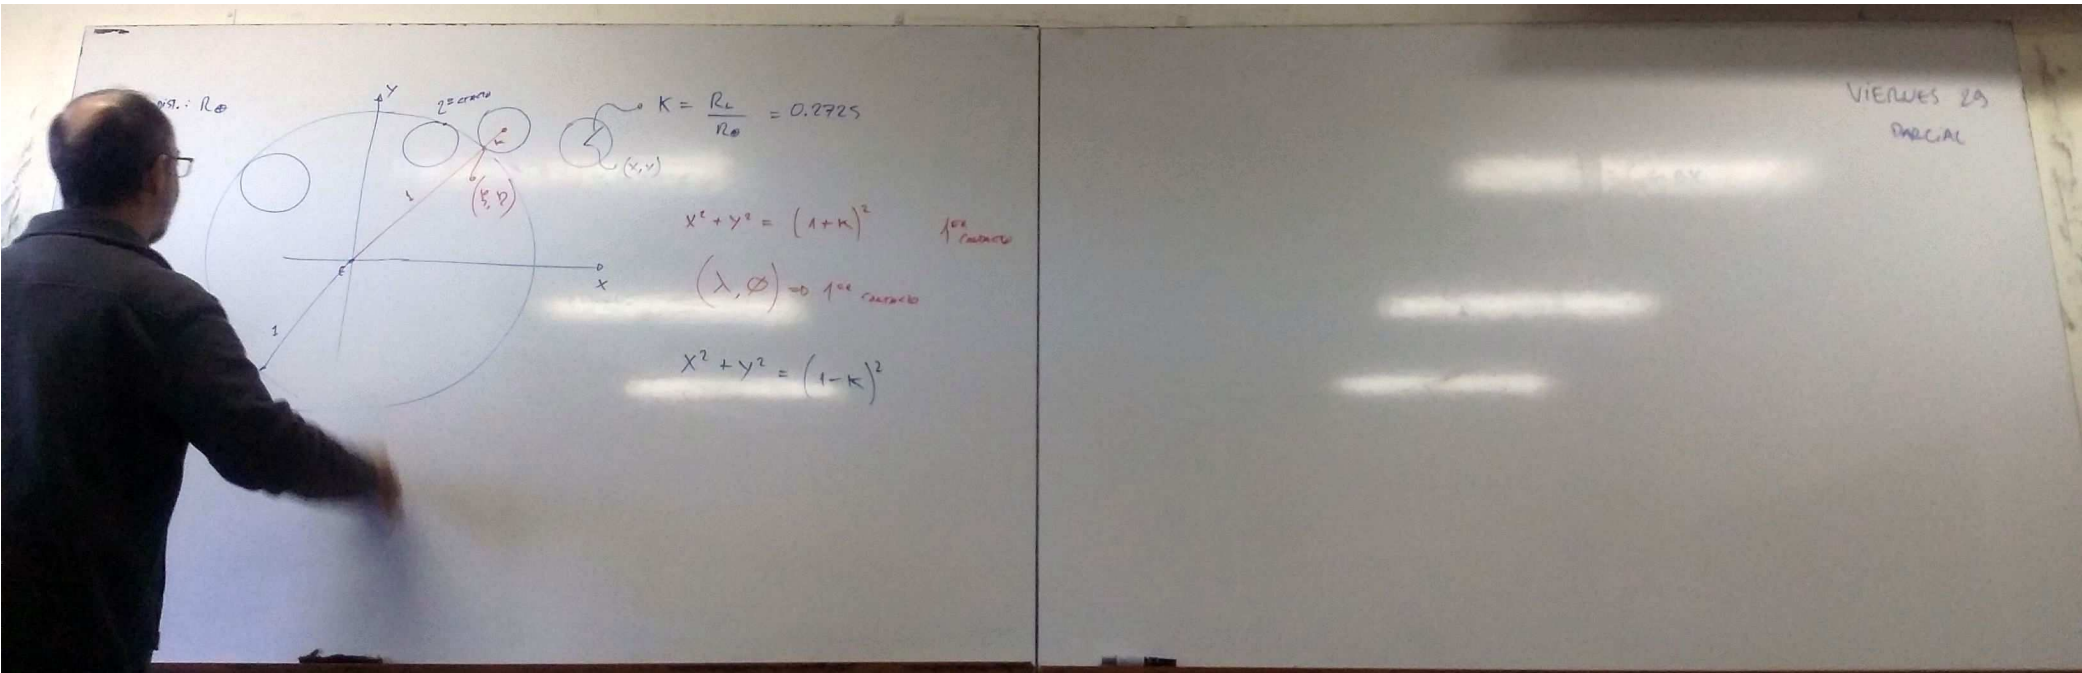 DIST.: R⊕
Y
2do CONTACTO
K = R_L / R⊕ = 0.2725
(X, Y)
K
(ξ, η)
1
X² + Y² = (1+K)² 1er CONTACTO
E
X
(λ, ϕ) ⇒ 1er CONTACTO
1
X² + Y² = (1-K)²
VIERNES 29
PARCIAL